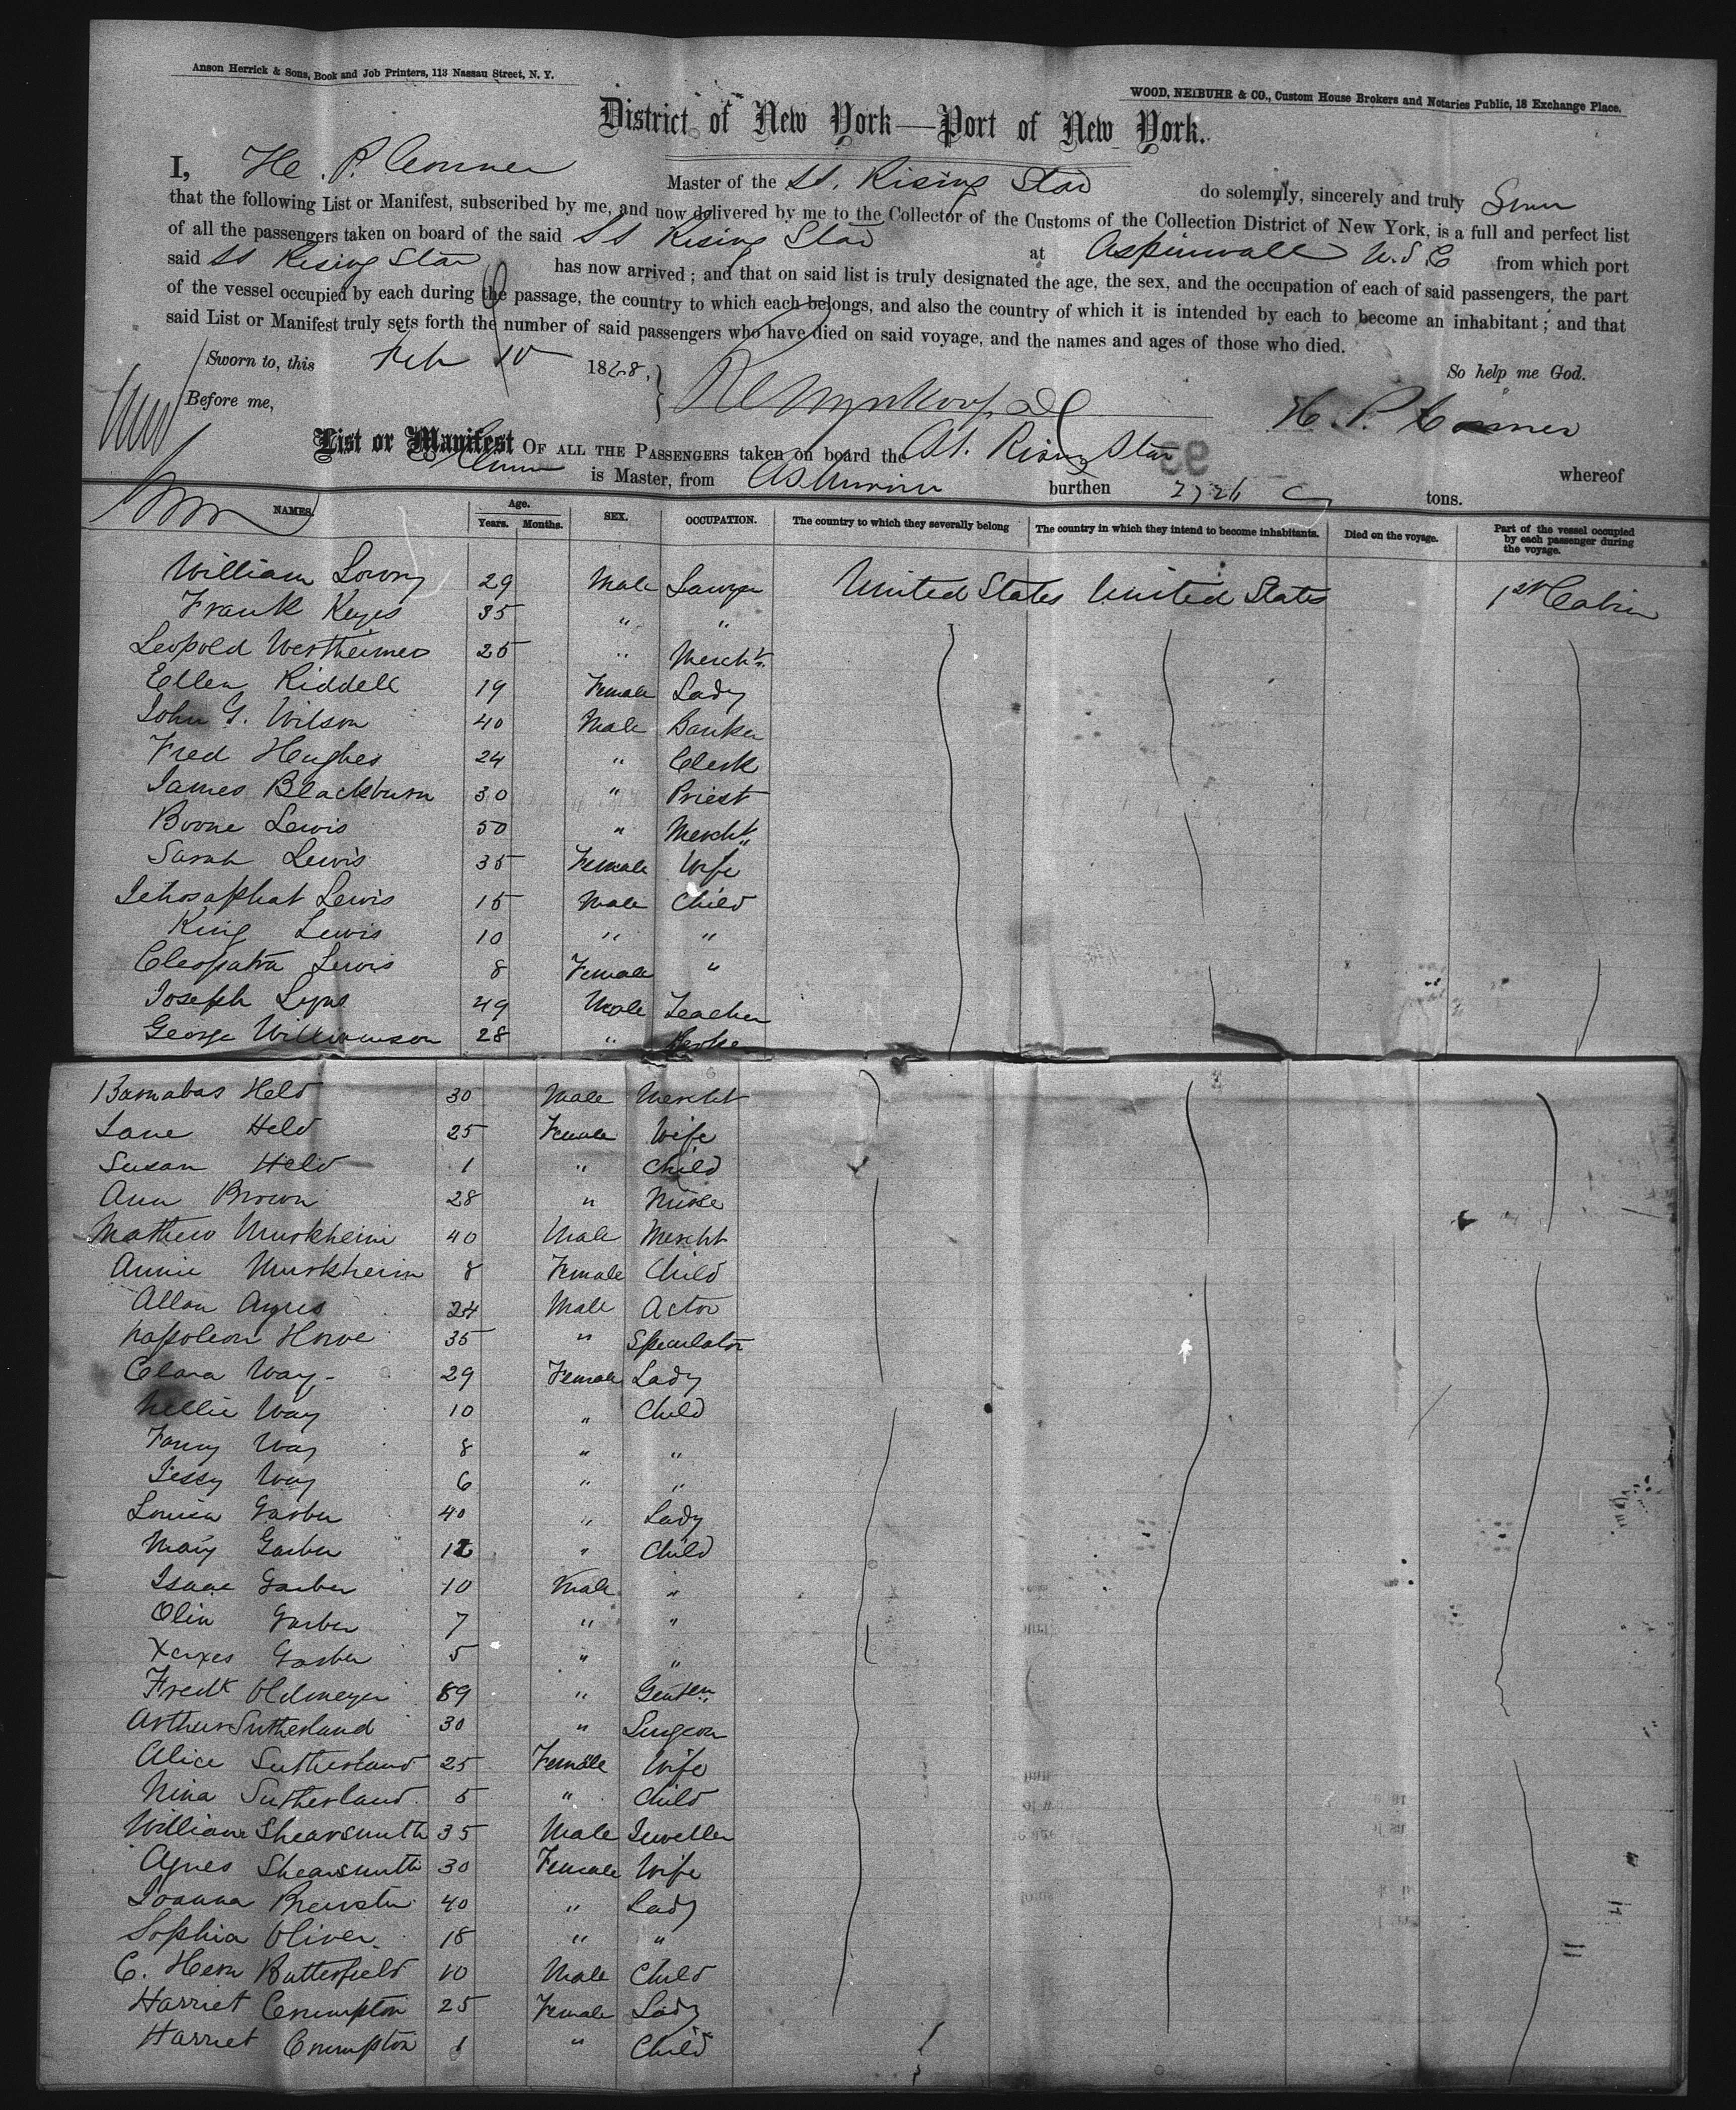 Anson Herrick & Sons, Book and Job Printers, 113 Nassau Street, N. Y.
WOOD, NEIBUHR & CO., Custom House Brokers and Notaries Public, 18 Exchange Place.
District of New York—Port of New York.
I, H. P. Conner Master of the SS. Rising Star do solemnly, sincerely and truly Swear
that the following List or Manifest, subscribed by me, and now delivered by me to the Collector of the Customs of the Collection District of New York, is a full and perfect list
of all the passengers taken on board of the said SS Rising Star at Aspinwall U.S.C from which port
said SS Rising Star has now arrived; and that on said list is truly designated the age, the sex, and the occupation of each of said passengers, the part
of the vessel occupied by each during the passage, the country to which each belongs, and also the country of which it is intended by each to become an inhabitant; and that
said List or Manifest truly sets forth the number of said passengers who have died on said voyage, and the names and ages of those who died.
Sworn to, this Feb 10 1868. So help me God.
Before me, H. P. Conner
List or Manifest OF ALL THE PASSENGERS taken on board the SS. Rising Star whereof
Conner is Master, from Aspinwall burthen 2726 tons.
NAMES. Age. Years. Months. SEX. OCCUPATION. The country to which they severally belong The country in which they intend to become inhabitants. Died on the voyage. Part of the vessel occupied by each passenger during the voyage.
William Lowry 29 Male Lawyer United States United States 1st Cabin
Frank Keyes 35 " "
Leopold Wertheimer 25 " Mercht.
Ellen Riddell 19 Female Lady
John G. Wilson 40 Male Banker
Fred Hughes 24 " Clerk
James Blackburn 30 " Priest
Boone Lewis 50 " Mercht.
Sarah Lewis 35 Female Wife
Jehosaphat Lewis 15 Male Child
King Lewis 10 " "
Cleopatra Lewis 8 Female "
Joseph Lyne 49 Male Teacher
George Williamson 28 " Broker
Barnabas Held 30 Male Mercht
Jane Held 25 Female Wife
Susan Held 1 " Child
Ann Brown 28 " Nurse
Mathew Murkheim 40 Male Mercht
Annie Murkheim 8 Female Child
Allan Ayres 24 Male Actor
Napoleon Howe 35 " Speculator
Clara Way 29 Female Lady
Nellie Way 10 " Child
Fanny Way 8 " "
Jessy Way 6 " "
Louisa Garber 40 " Lady
Mary Garber 12 " Child
Isaac Garber 10 Male "
Olin Garber 7 " "
Xerxes Garber 5 " "
Fredk Oldmeyer 59 " Gentem.
Arthur Sutherland 30 " Surgeon
Alice Sutherland 25 Female Wife
Nina Sutherland 5 " Child
William Shearsmith 35 Male Jeweller
Agnes Shearsmith 30 Female Wife
Joanna Brewster 40 " Lady
Sophia Oliver 18 " "
C. Hern Butterfield 10 Male Child
Harriet Crumpton 25 Female Lady
Harriet Crumpton 1 " Child